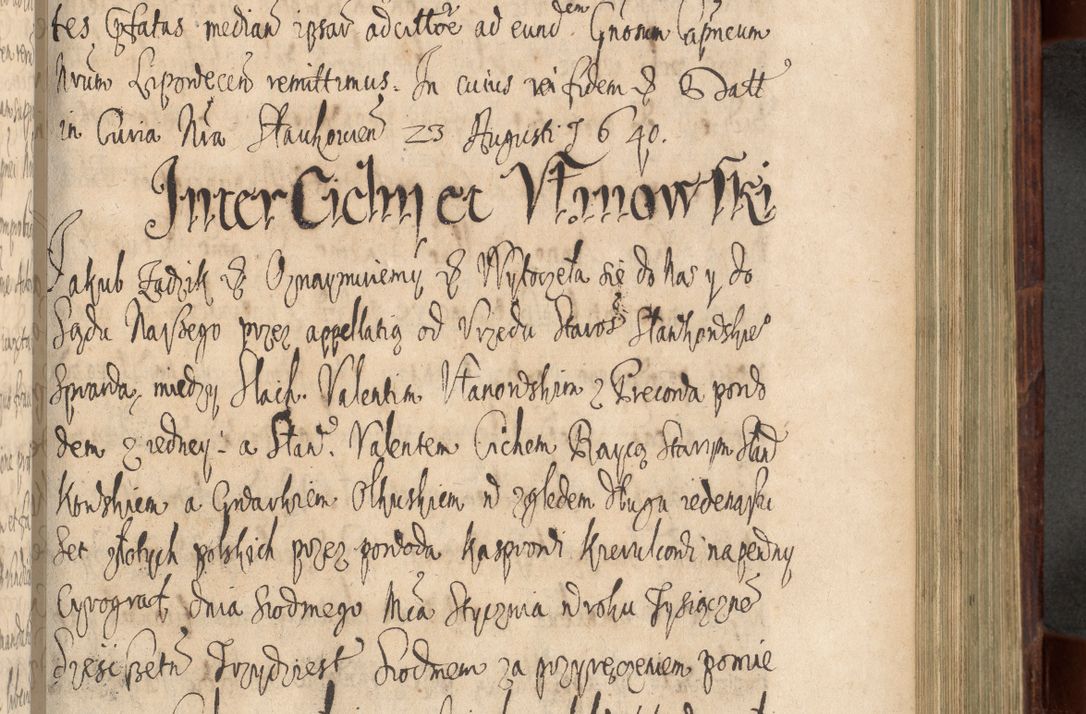 tes Cptatas median ipsar adcittõe ad eund<sup>em</sup> Gnosum Capneum
Nrum Lipovecen̄ remittimus. In cuius rei fidem & & Datt
in Curia Nra Slaukovien̄ 23 Augusti 1640.
Inter Cichy et Vstanowski
Jakub Zadzik & Oznaymuiemy & Wytoczeła się do nas y do
Sądu Naszego przez appellatią od Vrzedu Staroś Sławkowskie°
Sprawa, miedzy Slach. Valentim Vstanowskim z Precowa powo
dem z iedney: a Stan. Valentem Cichem Raycą Starym Sław
kowskiem a Gwarkiem Olkuskiem wzgledem długu iedenastu
set złotych polskich przez powoda Kasprowi Krewkowi na pewny
Cyrograf, dnia Siodmego Mca Stycznia w roku Tysiączne°
Sześć Setn Trzydziest Siodmem za przyręczeniem pomie